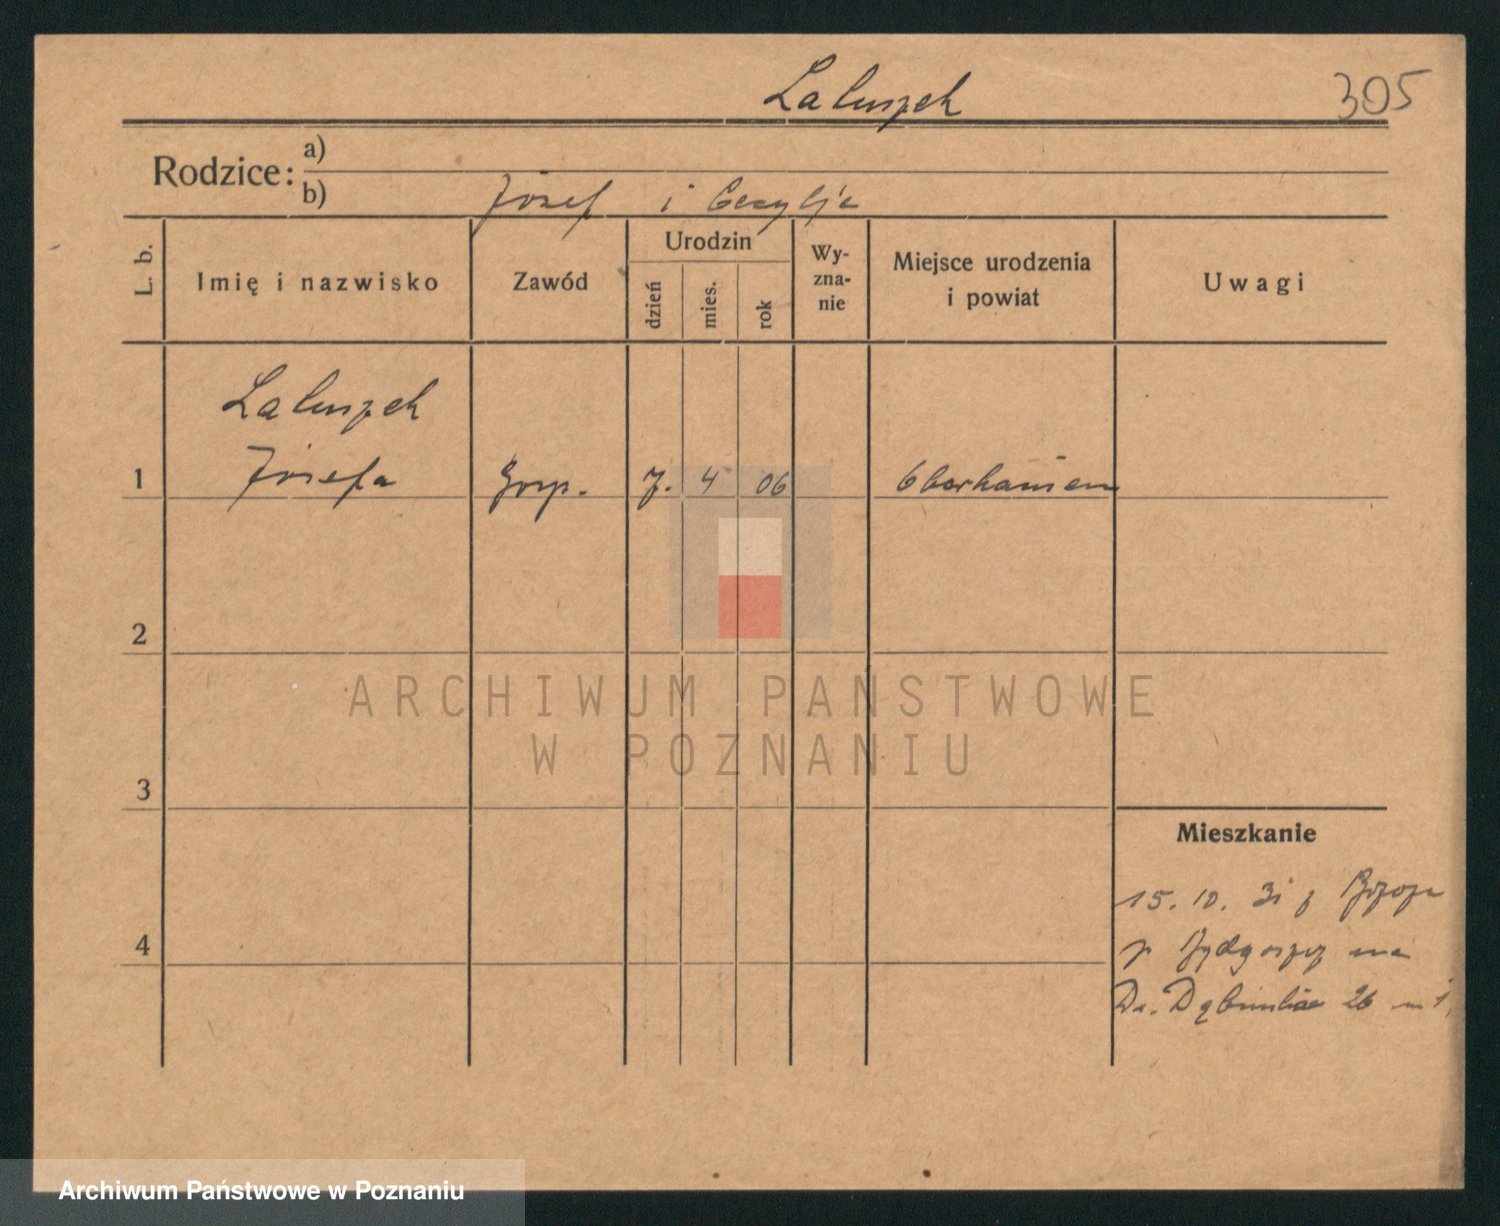 Laluszek
305
Rodzice: a)
b) Józef i Cecylja
L. b.
Imię i nazwisko
Zawód
Urodzin
dzień
mies.
rok
Wy-
zna-
nie
Miejsce urodzenia
i powiat
Uwagi
Laluszek
1 Józefa Gosp. 7. 4 06 Oberhausen
2
ARCHIWUM PAŃSTWOWE
W POZNANIU
3
Mieszkanie
15. 10. 31 z
4
p. Bydgoszcz na
26 m 1,
Archiwum Państwowe w Poznaniu